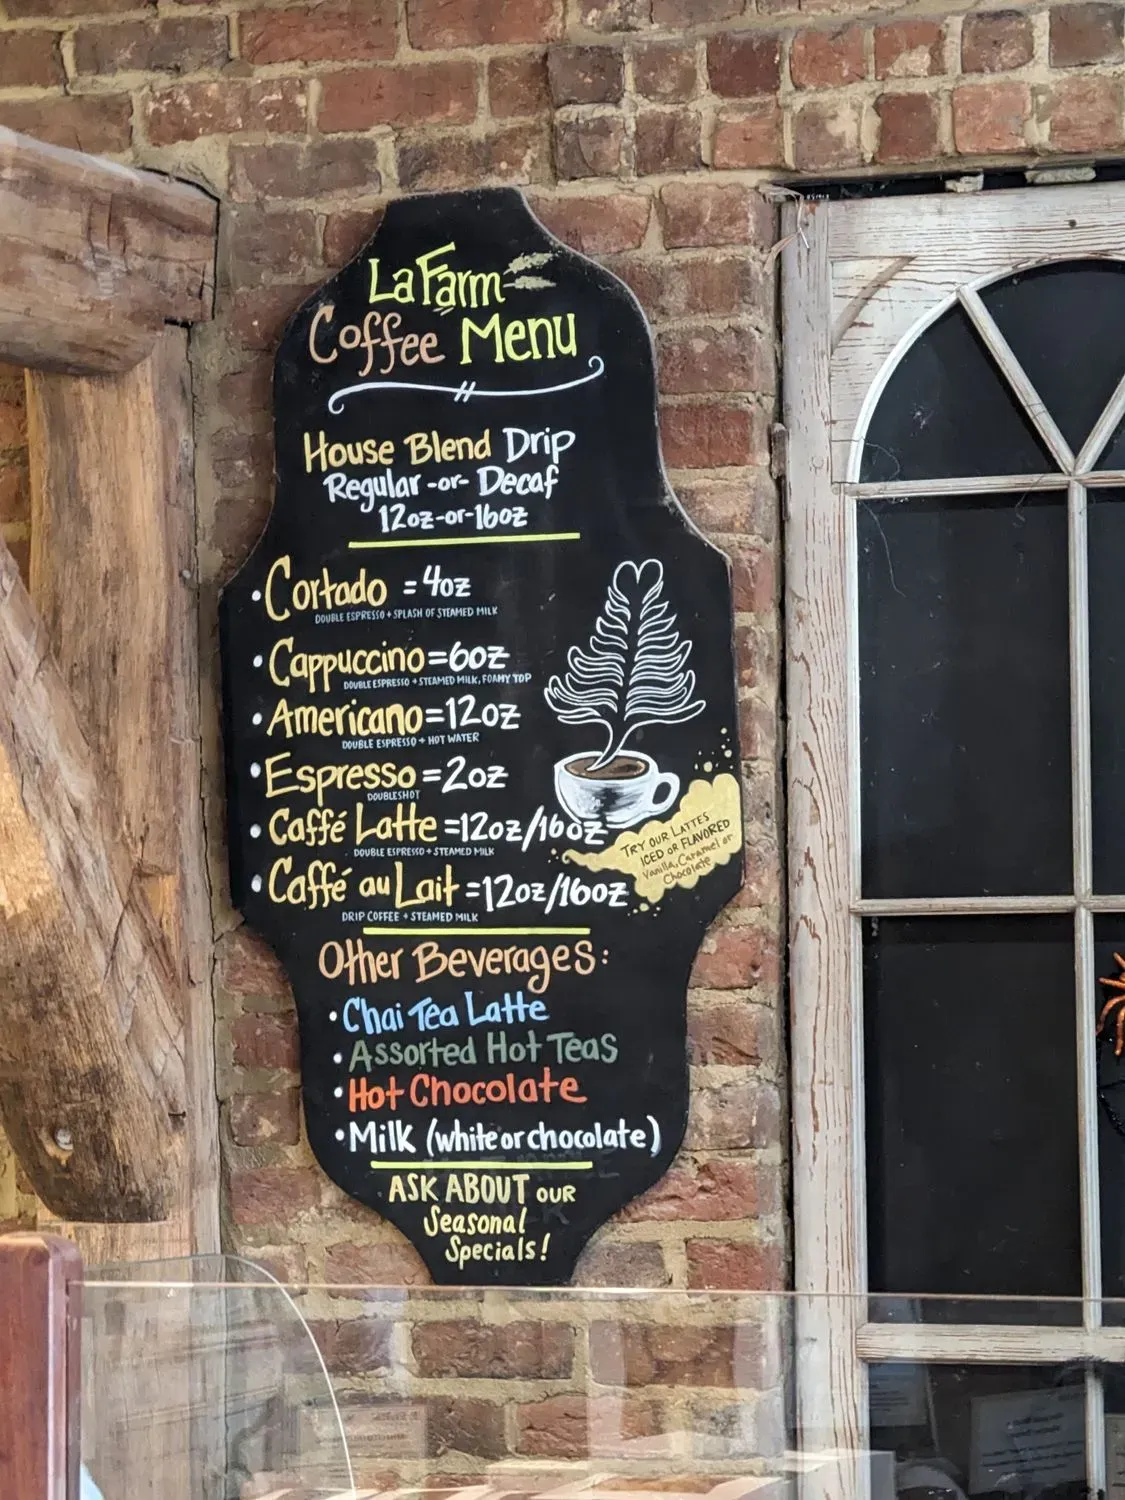 La Farm
Coffee Menu
House Blend Drip
Regular -or- Decaf
12oz-or-16oz
• Cortado = 4oz
DOUBLE ESPRESSO + SPLASH OF STEAMED MILK
• Cappuccino = 6oz
DOUBLE ESPRESSO + STEAMED MILK, FOAMY TOP
• Americano = 12oz
DOUBLE ESPRESSO + HOT WATER
• Espresso = 2oz
DOUBLESHOT
• Caffé Latte = 12oz/16oz
DOUBLE ESPRESSO + STEAMED MILK
TRY OUR LATTES
ICED OR FLAVORED
Vanilla, Caramel or
Chocolate
• Caffé au Lait = 12oz/16oz
DRIP COFFEE + STEAMED MILK
Other Beverages:
• Chai Tea Latte
• Assorted Hot Teas
• Hot Chocolate
• Milk (white or chocolate)
ASK ABOUT OUR
Seasonal
Specials!